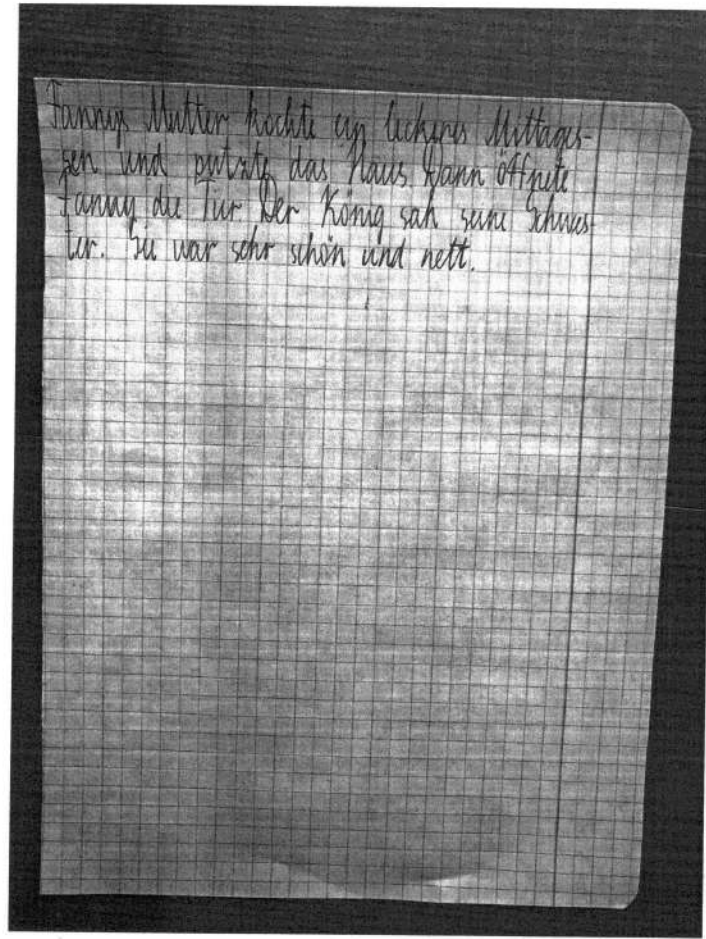 Fannys Mutter kochte ein leckeres Mittages-
sen und putzte das Haus. Dann öffnete
Fanny die Tür. Der König sah seine Schwes-
ter. Sie war sehr schön und nett.